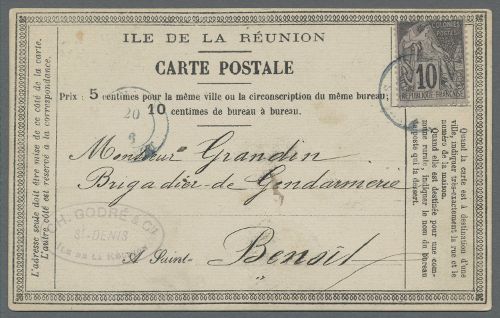 ILE DE LA RÉUNION
CARTE POSTALE
Prix : 5 centimes pour la même ville ou la circonscription du même bureau;
10 centimes de bureau à bureau.
10
RÉPUBLIQUE FRANÇAISE
20
Monsieur Grandin
Brigadier de Gendarmerie
A Saint-Benoît
H. GODRÉ & C
St-DENIS
ILE DE LA
L'adresse seule doit être mise de ce côté de la carte.
L'autre côté est réservé à la correspondance.
Quand la carte est à destination d'une
ville, indiquer très-exactement la rue et le
numéro de la maison.
Quand elle est destinée pour une com-
mune rurale, indiquer le nom du bureau
de poste qui la dessert.